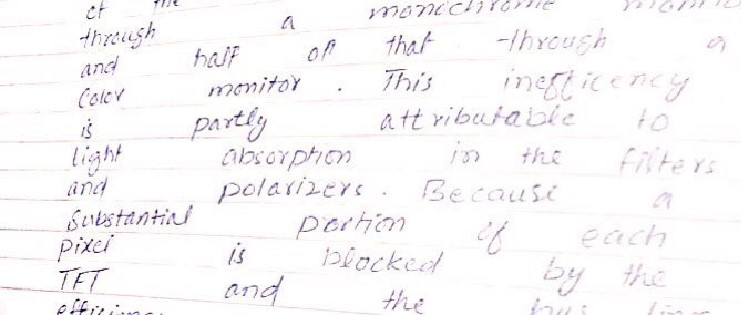 of the
through a monochrome
and half of that through a
Color monitor. This inefficency
is partly attributable to
light absorption in the filters
and polarizers. Because a
Substantial portion of each
pixel is blocked by the
TFT and the bus line